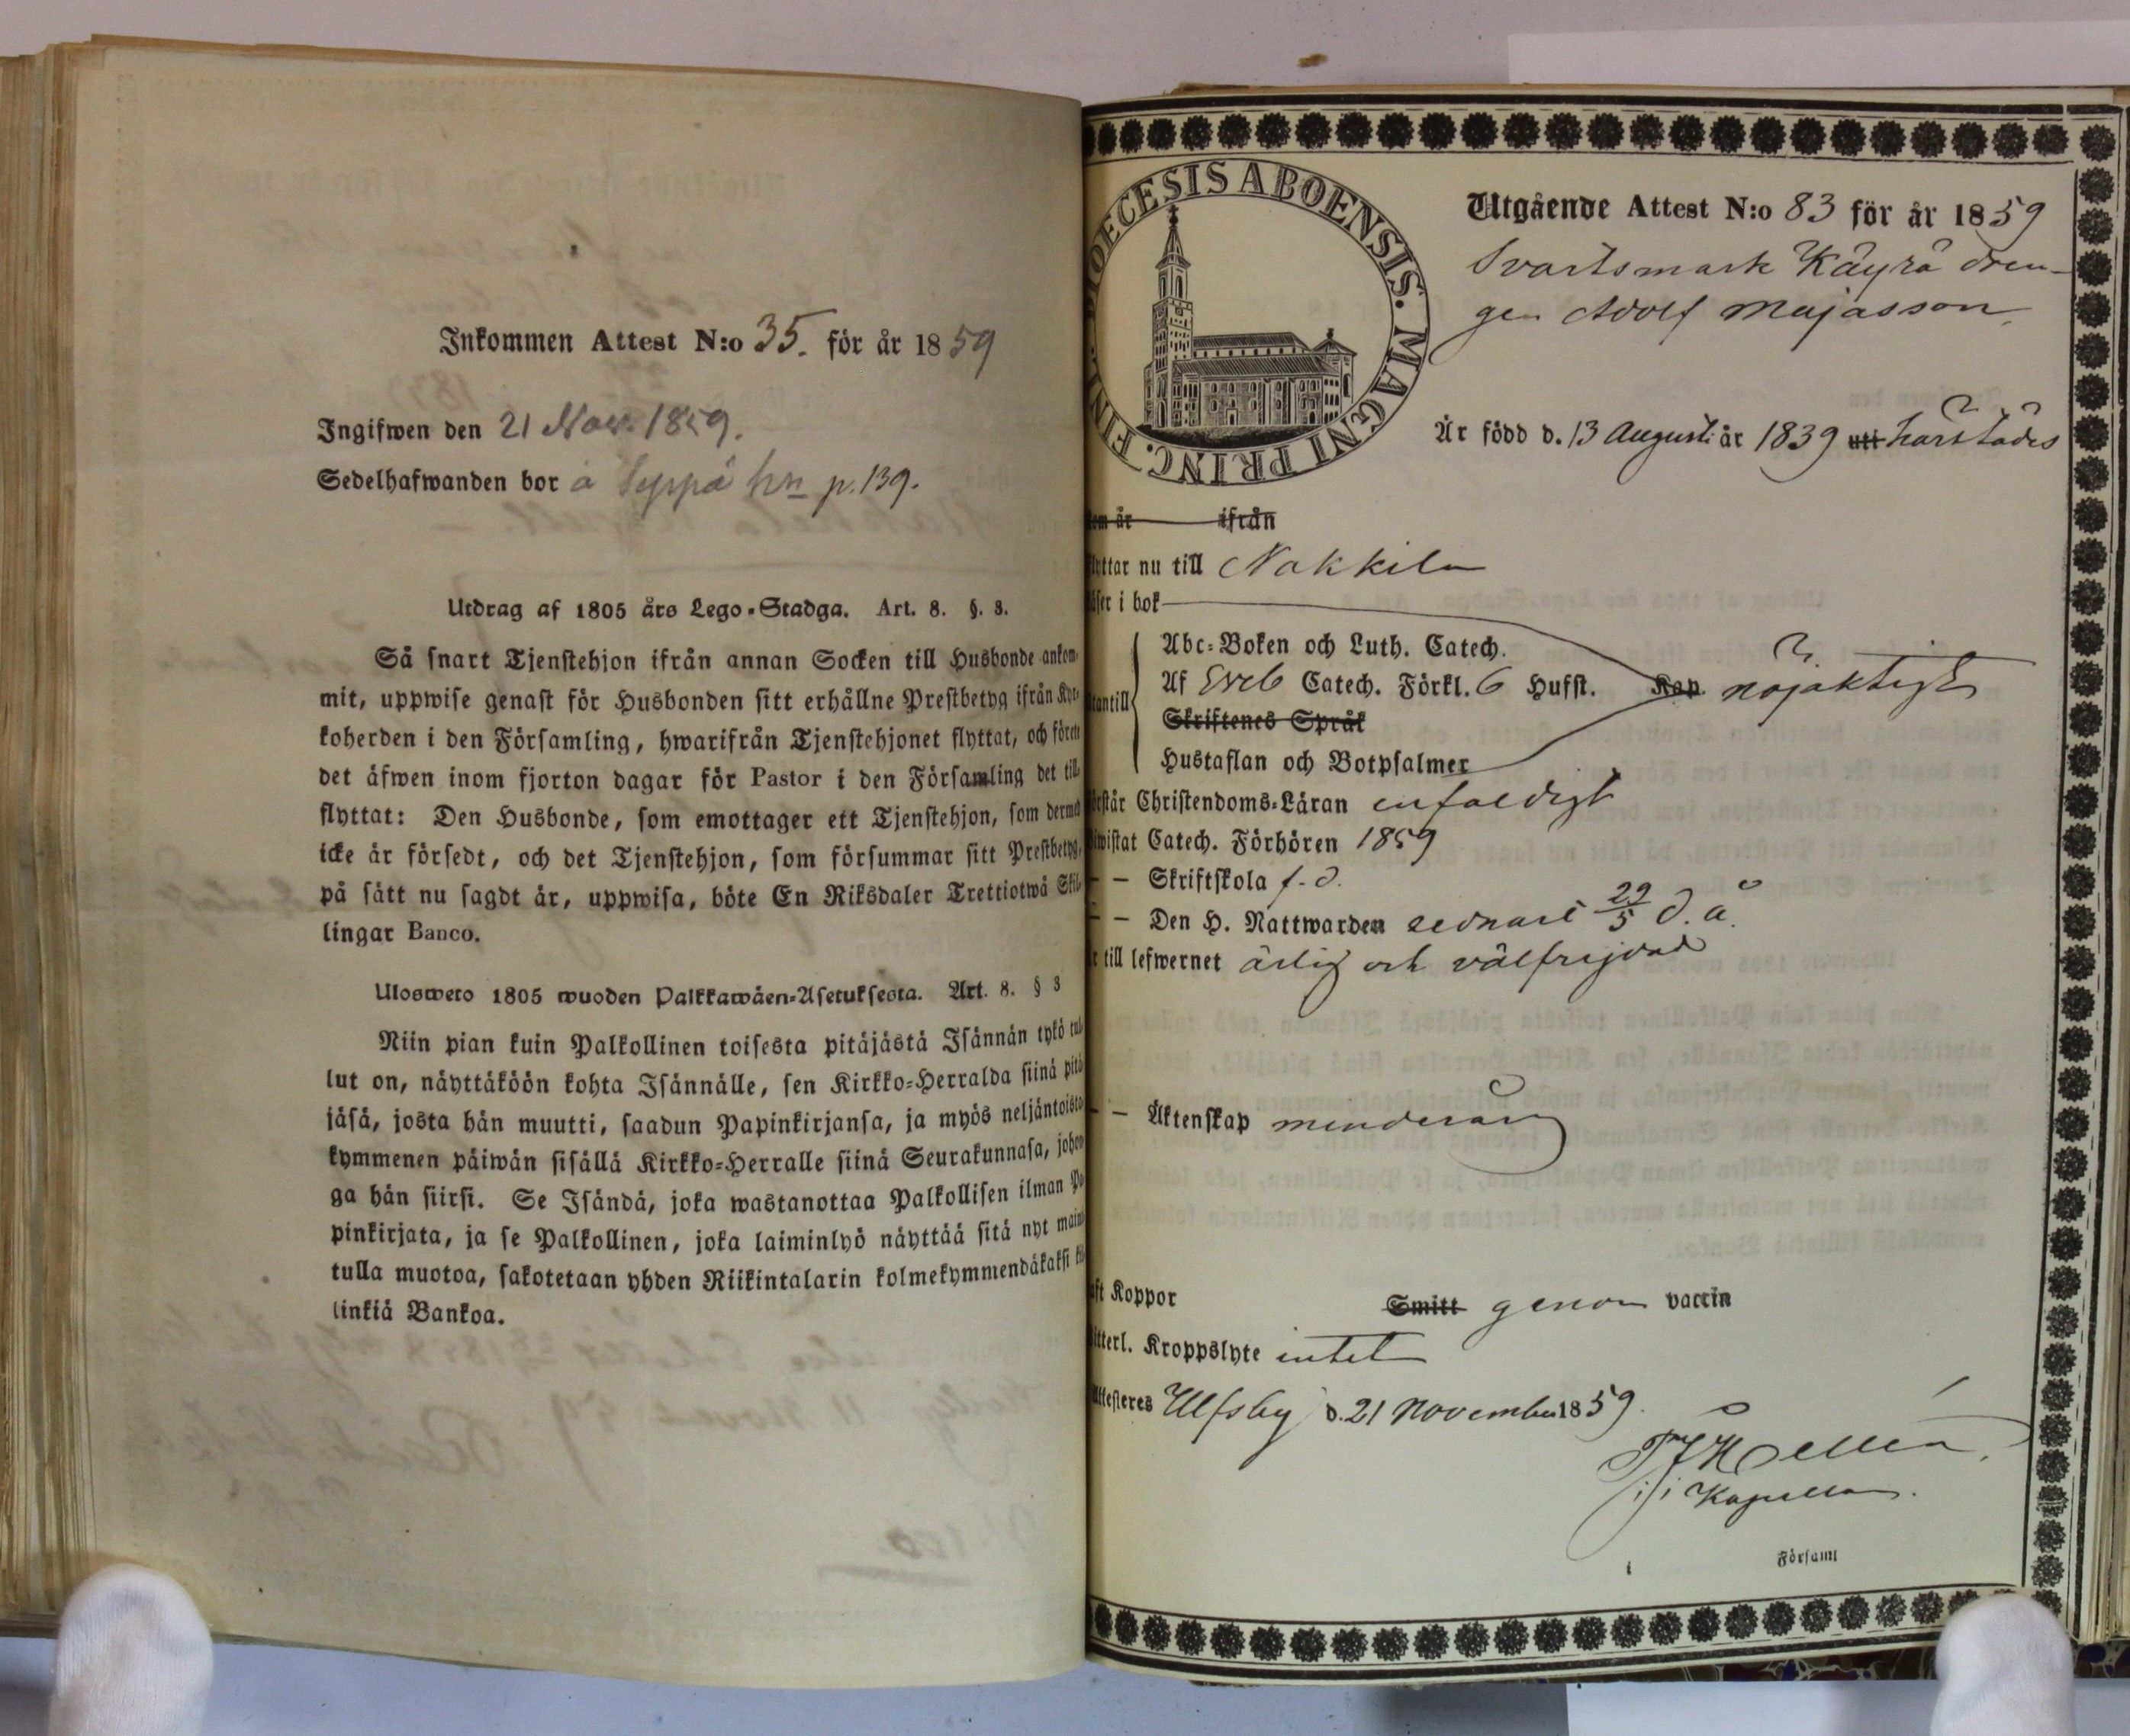 Inkommen Attest N:o 35. för år 1859
Ingifwen den 21 Nov. 1859.
Sedelhafwanden bor å Seppä hn p. 139.
Utdrag af 1805 års Lego-Stadga. Art. 8. §. 3.
Så snart Tjenstehjon ifrån annan Socken till Husbonde ankom-
mit, uppwise genast för Husbonden sitt erhållne Prestbetyg ifrån Kyr-
koherden i den Församling, hwarifrån Tjenstehjonet flyttat, och förete
det äfwen inom fjorton dagar för Pastor i den Församling det till-
flyttat: Den Husbonde, som emottager ett Tjenstehjon, som dermed
icke är försedt, och det Tjenstehjon, som försummar sitt Prestbetyg,
på sätt nu sagdt är, uppwisa, böte En Riksdaler Trettiotwå Skil-
lingar Banco.
Ulosweto 1805 wuoden Palkkawäen-Asetuksesta. Art. 8. § 3
Niin pian kuin Palkollinen toisesta pitäjästä Isännän tykö tul-
lut on, näyttäköön kohta Isännälle, sen Kirkko-Herralda siinä pitä-
jäsä, josta hän muutti, saadun Papinkirjansa, ja myös neljäntoista-
kymmenen päiwän sisällä Kirkko-Herralle siinä Seurakunnasa, johon-
ga hän siirsi. Se Isändä, joka wastanottaa Palkollisen ilman Pa-
pinkirjata, ja se Palkollinen, joka laiminlyö näyttää sitä nyt mainit-
tulla muotoa, sakotetaan yhden Riikintalarin kolmekymmendäkaksi kil-
linkiä Bankoa.
DIOECESIS ABOENSIS. MAGNI PRINC. FINL.
Utgående Attest N:o 83 för år 1859
Svartsmark Käyrä dren-
gen Adolf Majasson,
Är född d. 13 Augusti år 1839 uti härstädes
som är ifrån
flyttar nu till Nakkila
läser i bok
utantill
Abc-Boken och Luth. Catech.
Af Catech. Förkl. 6 Hufst. Kap. nöjaktigt
Skriftenes Språk
Hustaflan och Botpsalmer
förstår Christendoms-Läran enfaldigt
biwistat Catech. Förhören 1859
— — Skriftskola f. d.
— — Den H. Nattwarden sednast 29/5 d. å.
är till lefwernet ärlig och välfrejdad
— — Äktenskap minderårig
haft Koppor Smitt genom vaccin
witterl. Kroppslyte intet
Attesteres Ulfsby d. 21 November 1859.
Kapellan.
i Församl